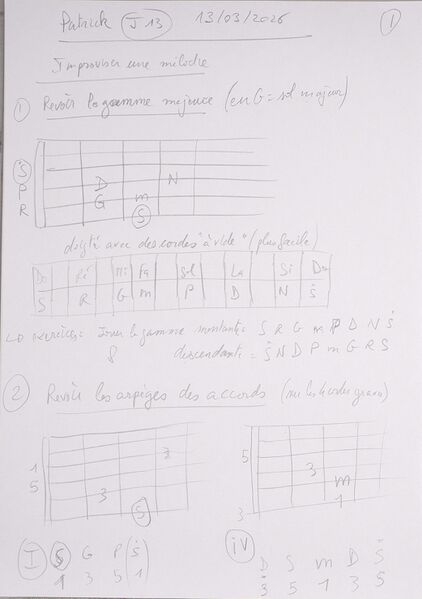 Patrick J 13 13/03/2026 1
Improviser une mélodie
1 Revoir la gamme majeure (en G = sol majeur)
Ṡ
P D N
R G m
S
doigté avec des cordes "à vide" (plus facile)
Do Ré Mi Fa Sol La Si Do
S R G m P D N Ṡ
exercices: Jouer la gamme montante: S R G m P D N Ṡ
& descendante = Ṡ N D P m G R S
2 Revoir les arpèges des accords (sur les cordes graves)
1 5
5 3 3 m
S 3 1
I S G P (Ṡ) IV D S m D Ṡ
1 3 5 1 3 5 1 3 5